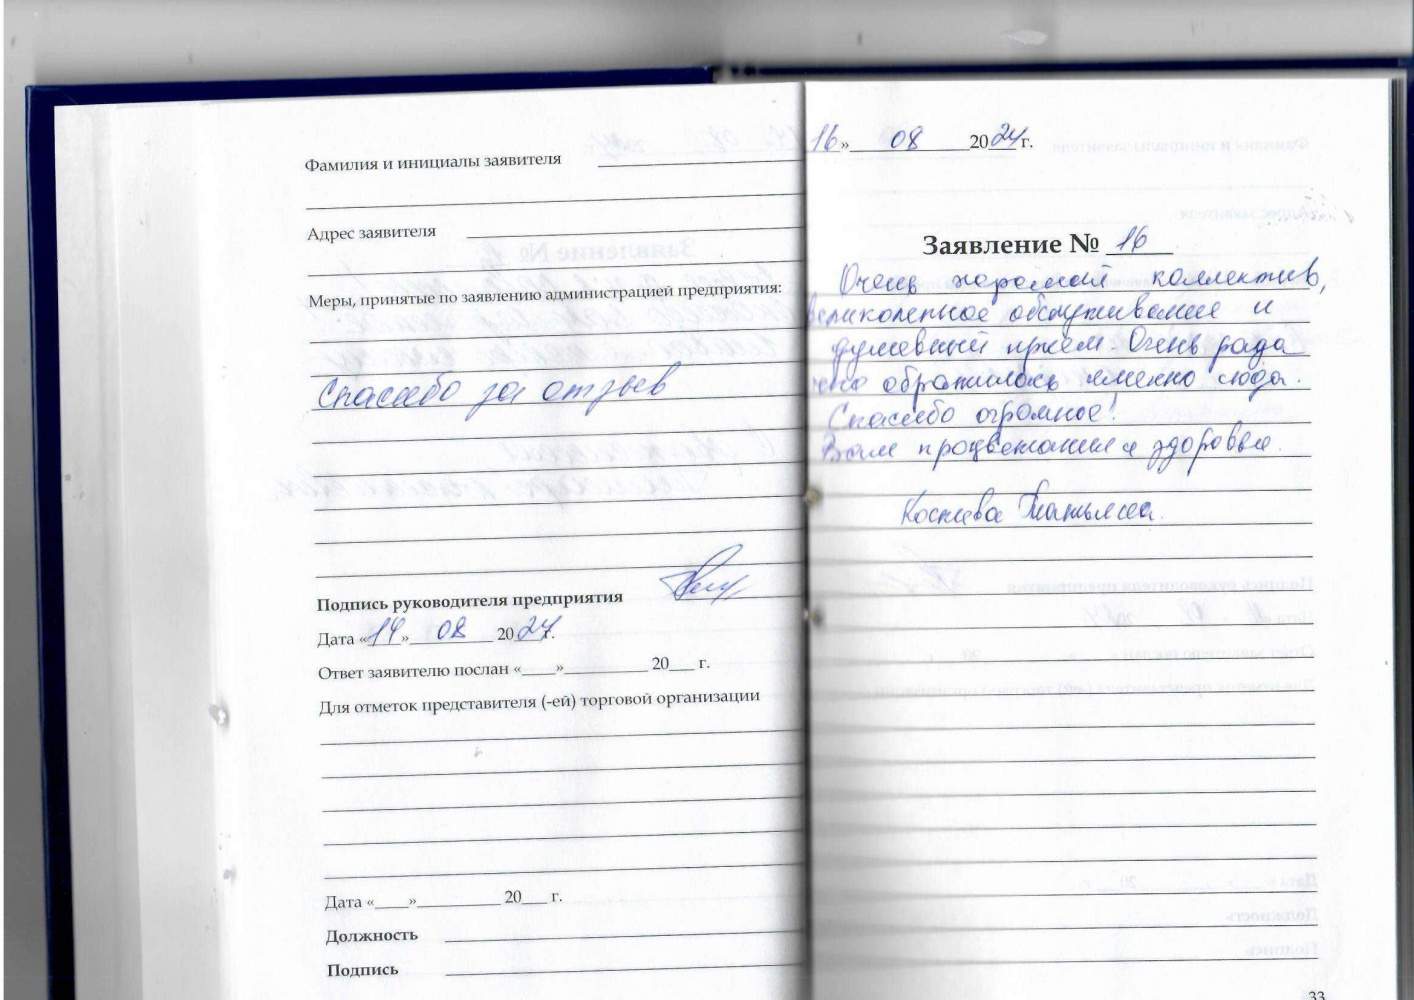 Фамилия и инициалы заявителя
Адрес заявителя
Меры, принятые по заявлению администрацией предприятия:
Спасибо за отзыв
Подпись руководителя предприятия
Дата «14» 08 2024г.
Ответ заявителю послан «____»__________ 20___ г.
Для отметок представителя (-ей) торговой организации
Дата «____»__________ 20___ г.
Должность
Подпись
16» 08 2024 г.
Заявление № 16
Очень хороший коллектив,
великолепное обслуживание и
душевный приём. Очень рада
что обратилась именно сюда.
Спасибо огромное!
Вам процветания и здоровья.
Татьяна.
33